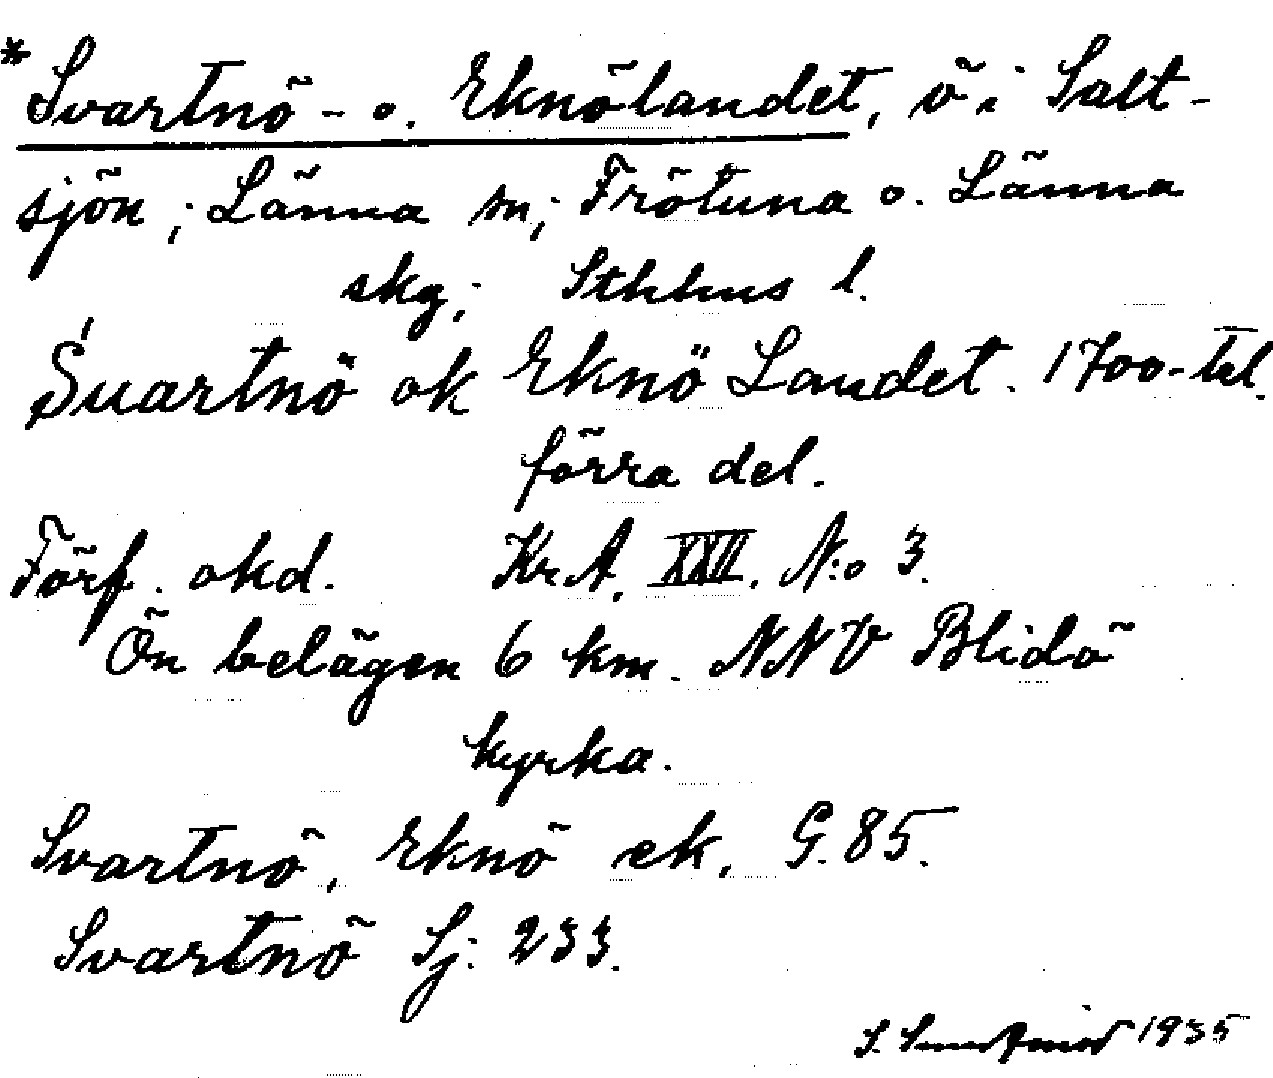 *Svartnö- o. Eknölandet, ö i Salt-
sjön; Länna sn; Frötuna o. Länna
skg; Sthlms l.
Suartnö ok Eknö Landet. 1700-tal.
förra del.
Förf. okd. Kr.A. XXII. N:o 3.
Ön belägen 6 km. NNV Blidö
kyrka.
Svartnö, Eknö ek. G. 85.
Svartnö Sj: 233.
S. 1935